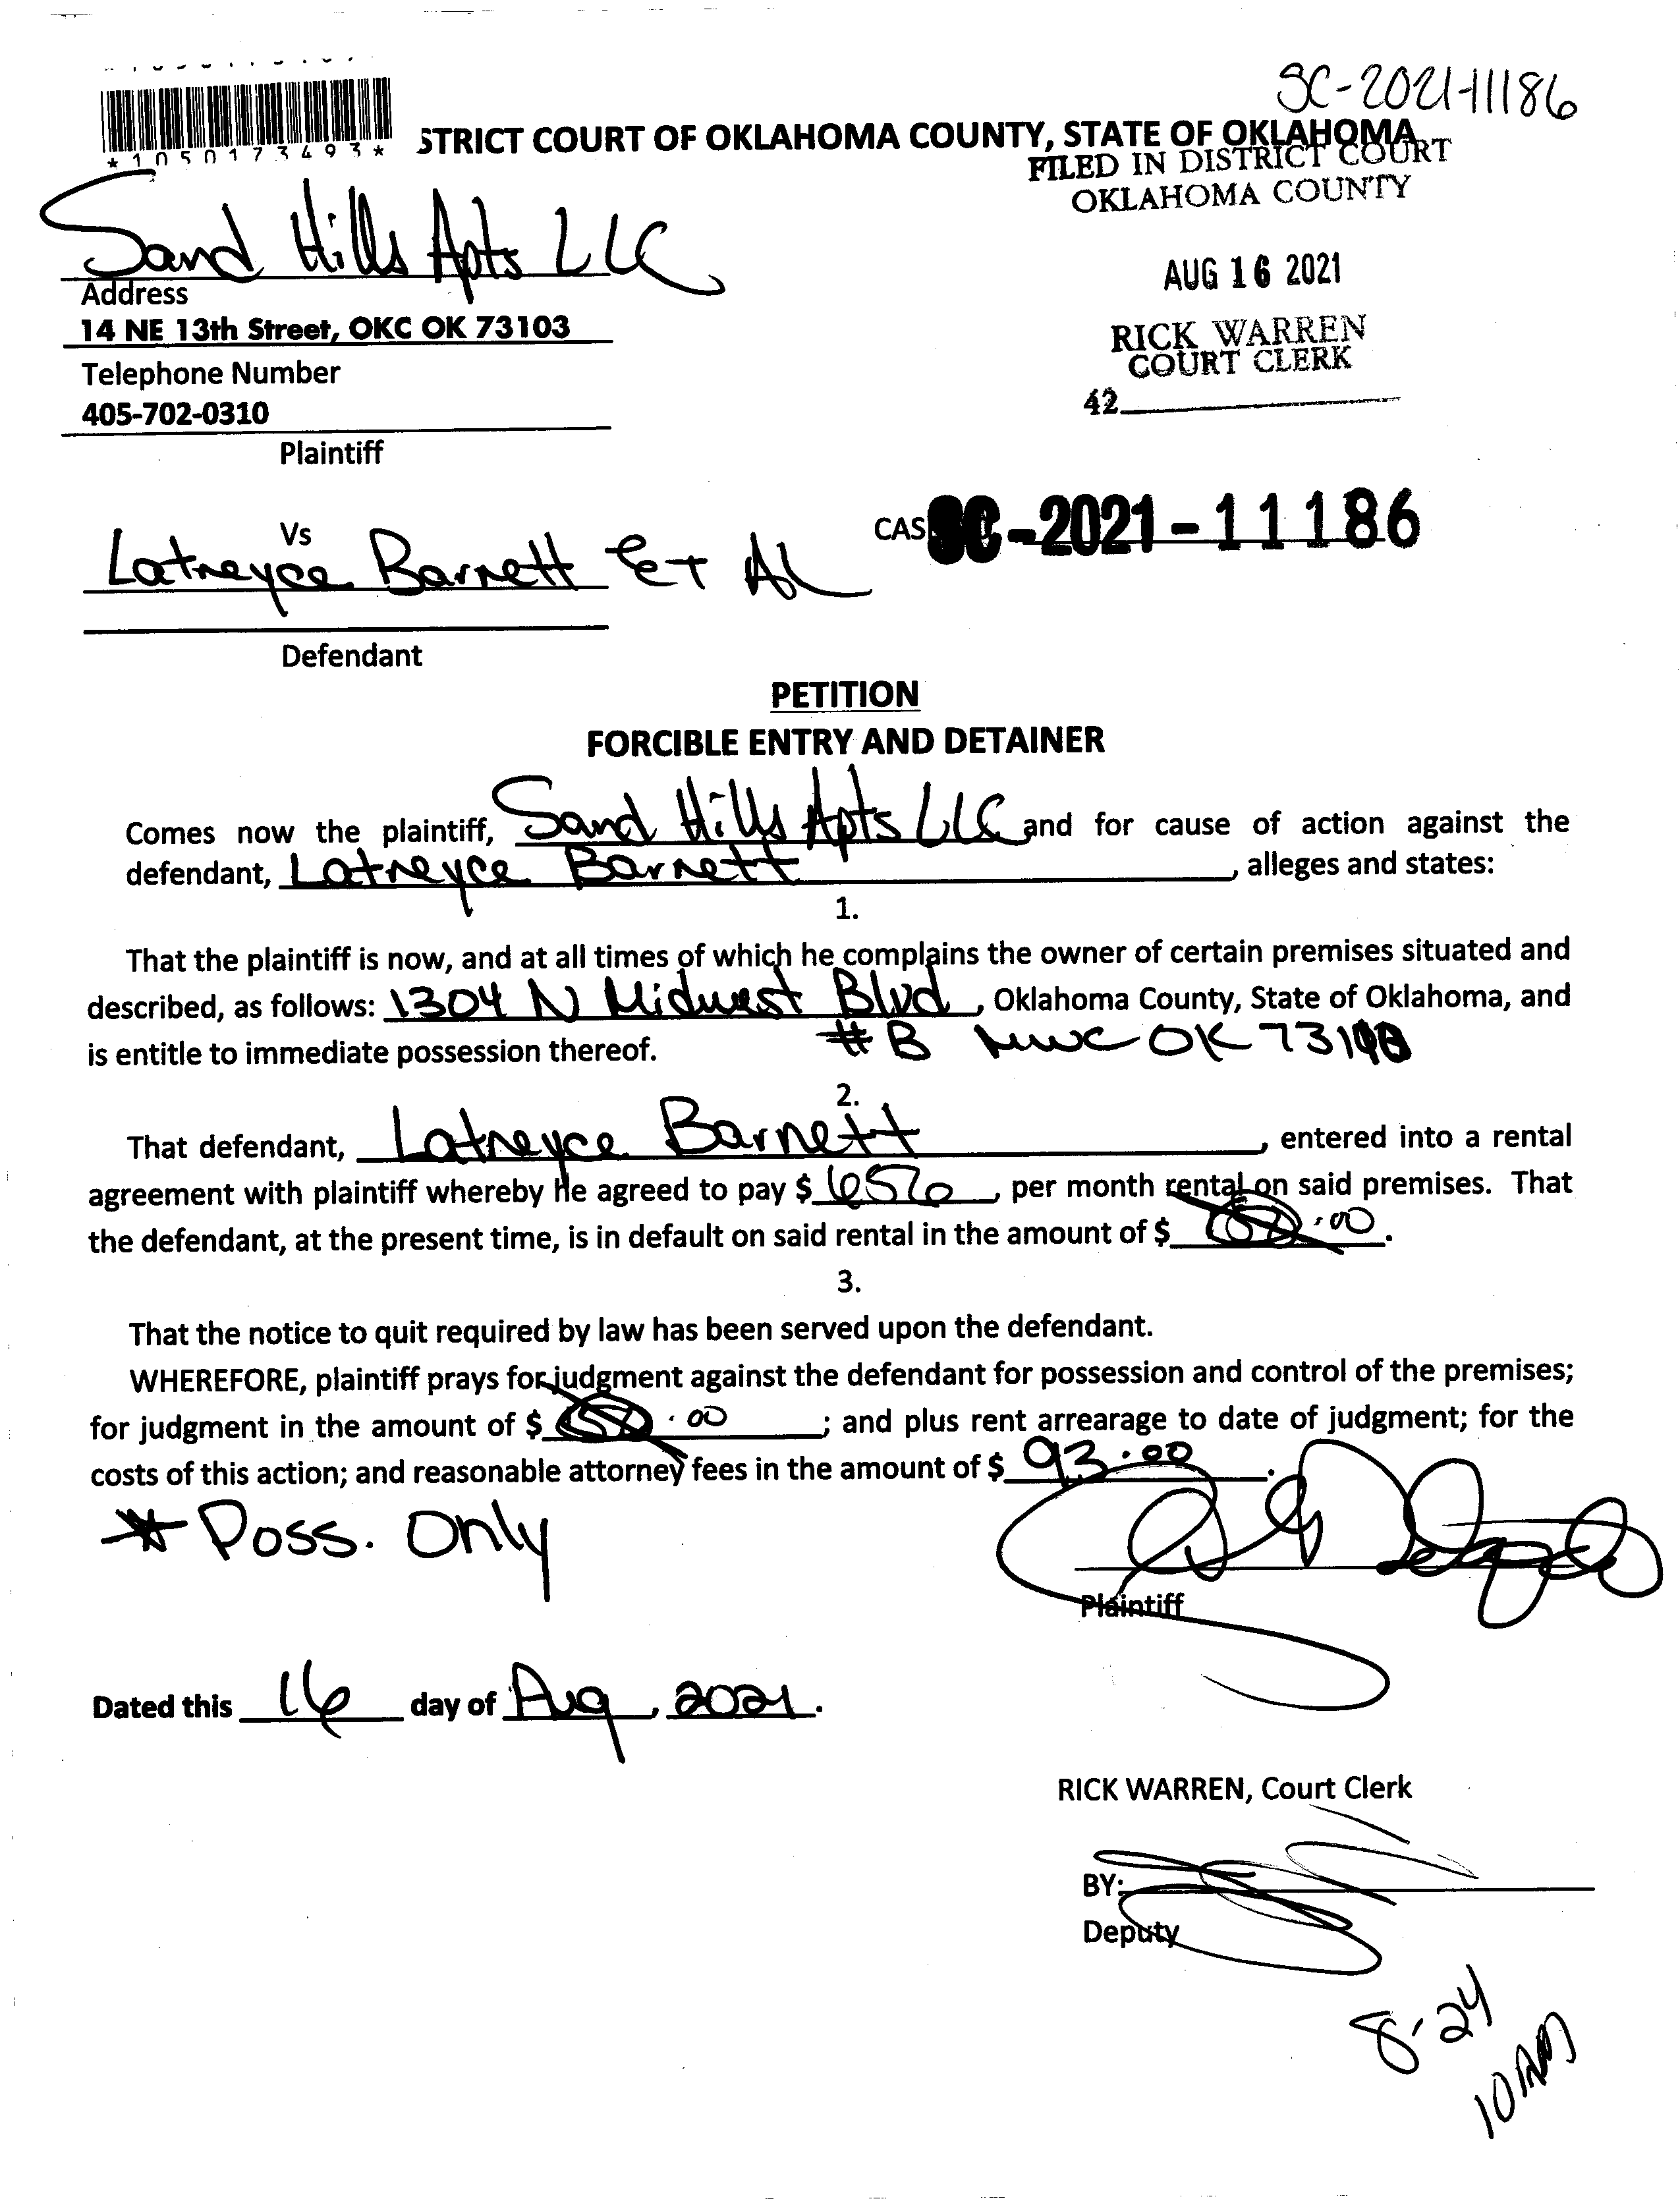 SC-2021-11186
*1050173493*
STRICT COURT OF OKLAHOMA COUNTY, STATE OF OKLAHOMA
FILED IN DISTRICT COURT
OKLAHOMA COUNTY
Sand Hills Apts LLC
Address
14 NE 13th Street, OKC OK 73103
AUG 16 2021
RICK WARREN
COURT CLERK
Telephone Number
405-702-0310
42
Plaintiff
Vs
CAS SC-2021-11186
Latreyce Barnett Et Al
Defendant
PETITION
FORCIBLE ENTRY AND DETAINER
Comes now the plaintiff, Sand Hills Apts LLC and for cause of action against the
defendant, Latreyce Barnett, alleges and states:
1.
That the plaintiff is now, and at all times of which he complains the owner of certain premises situated and
described, as follows: 1304 N Midwest Blvd, Oklahoma County, State of Oklahoma, and
is entitle to immediate possession thereof. #B MWC OK
2.
That defendant, Latreyce Barnett, entered into a rental
agreement with plaintiff whereby He agreed to pay $ 656, per month rental on said premises. That
the defendant, at the present time, is in default on said rental in the amount of $ .00.
3.
That the notice to quit required by law has been served upon the defendant.
WHEREFORE, plaintiff prays for judgment against the defendant for possession and control of the premises;
for judgment in the amount of $ .00; and plus rent arrearage to date of judgment; for the
costs of this action; and reasonable attorney fees in the amount of $ 93.00.
* Poss. Only
Plaintiff
Dated this 16 day of Aug, 2021.
RICK WARREN, Court Clerk
BY:
Deputy
8-24
10 AM